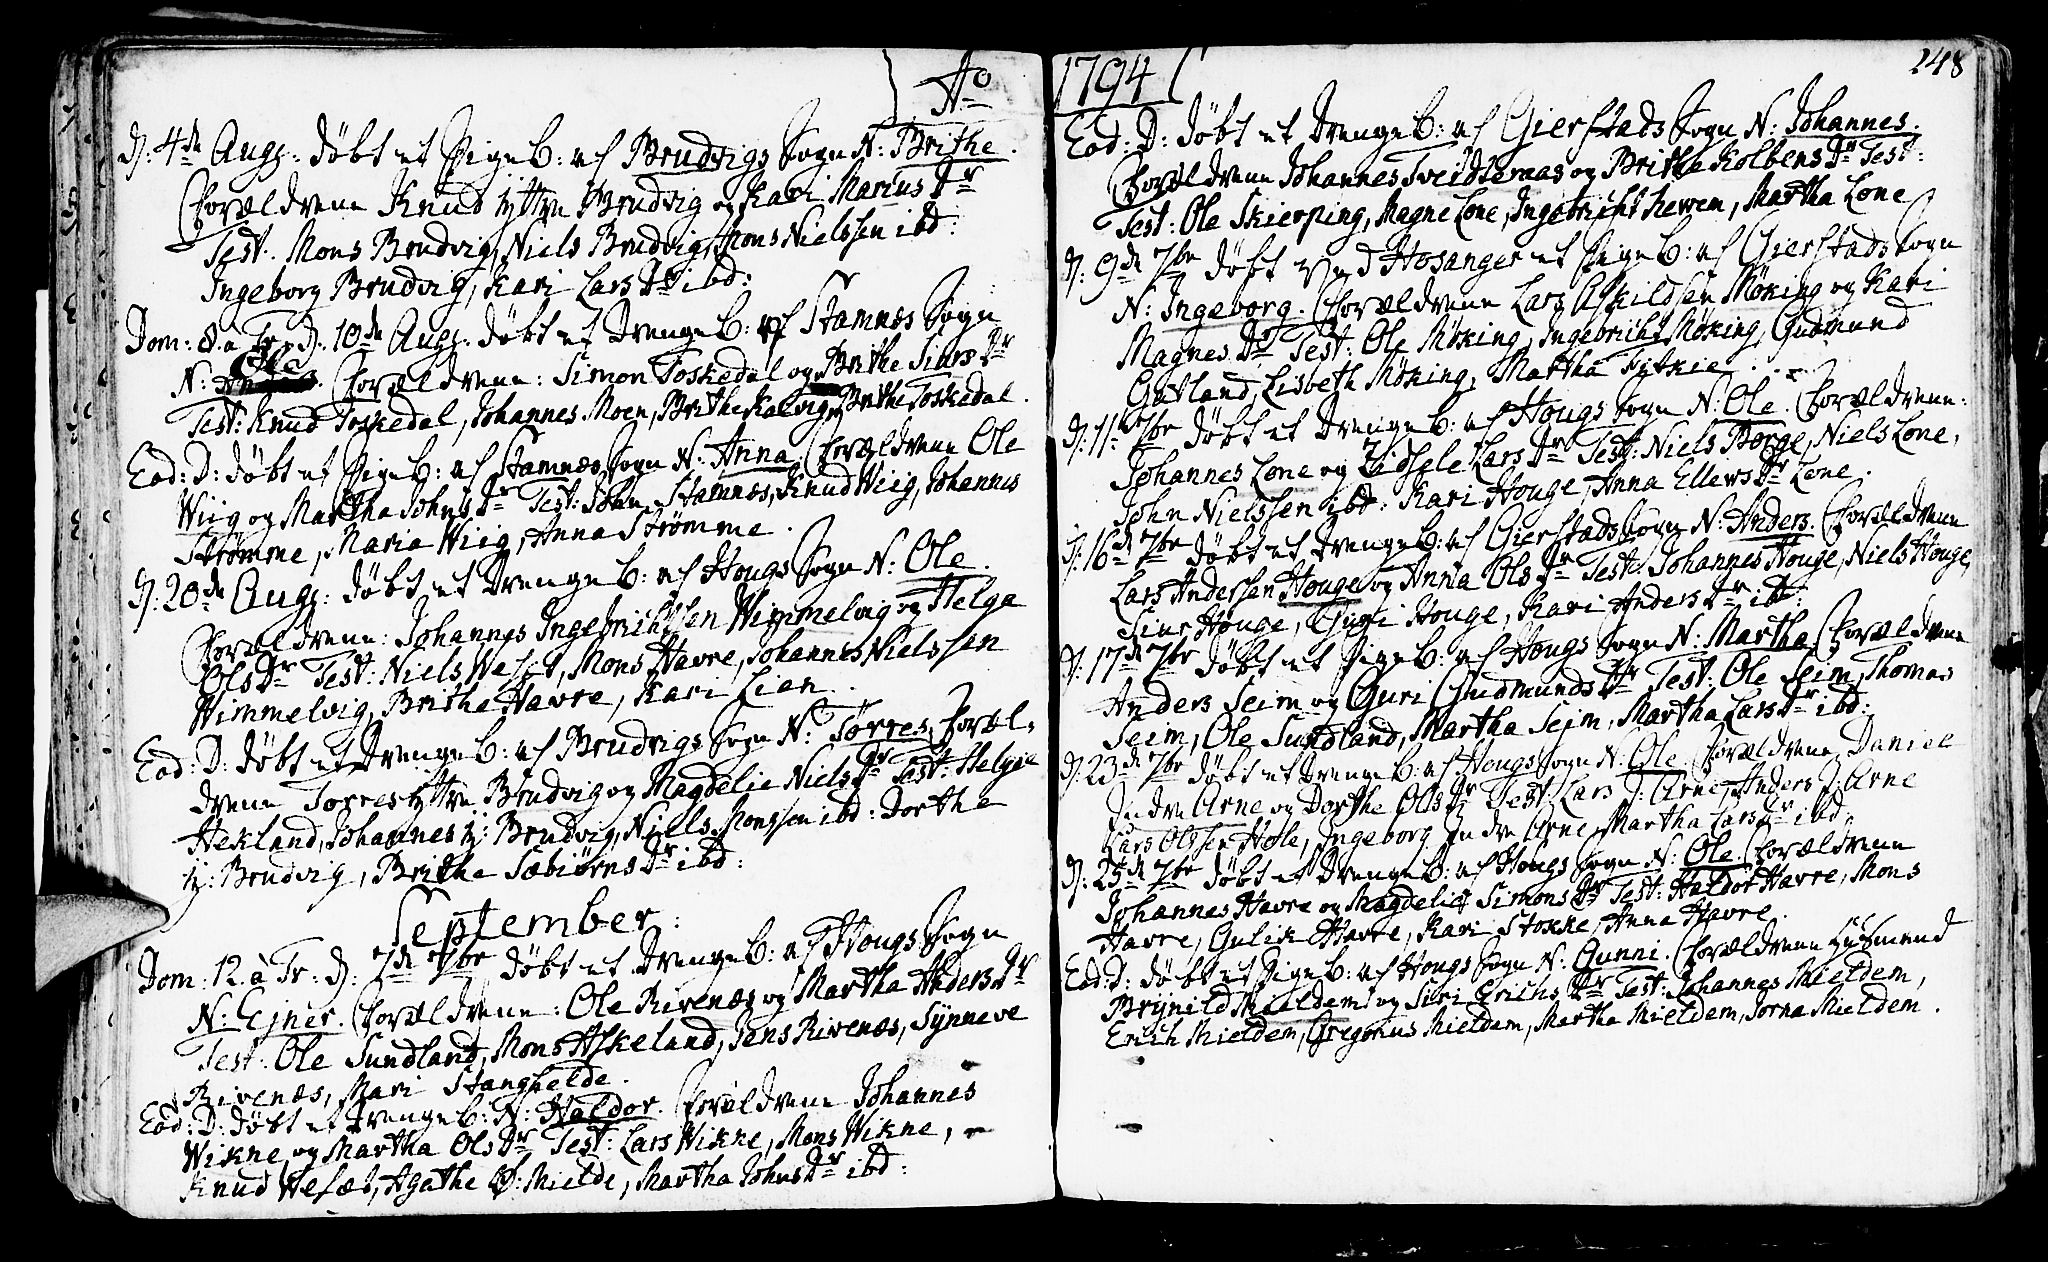 Ao
D: 4de Aug: døbt et Pigeb: af Brudvigs Sogn N: Brithe.
Forældrene Knud yttre Brudvig og Kari Marius Dr
Test: Mons Brudvig, Niels Brudvig, Mons Nielssen ibd:
Ingeborg Brudvig, Kari Lars Dr ibd:
Dom: 8. à Tr: D. 10de Aug: døbt et Drengeb: af Stamnæs Sogn
N: Ole. Forældrene: Simon Toskedal og Brithe Siurs Dr
Test: Knud Toskedal, Johannes Moen, Brithe Kalvig, Brithe Toskedal.
Eod: D: døbt et Pigeb: af Stamnæs Sogn N: Anna. Forældrene Ole
Wiig og Martha Johns Dr Test: John Stamnæs, Knud Wiig, Johannes
Strømme, Maria Wiig, Anna Strømme.
D: 20de Aug: døbt et Drengeb: af Hougs Sogn N: Ole.
Forældrene: Johannes Ingebrichtsen Wimmelvig og Helga
Ols Dr Test: Niels Wesæt, Mons Havre, Johannes Nielssen
Wimmelvig, Britha Havre, Kari Lien.
Eod: D: døbt et Drengeb: af Brudvigs Sogn N: Torres, Foræl-
drene Torres yttre Brudvig og Magdelie Niels Dr Test: Helgie
Hekland, Johannes y: Brudvig, Niels Monssen ibd: Dorthe
y: Brudvig, Brithe Sæbiørns Dr ibd:
September:
Dom: 12. à Tr: D: 7de 7br døbt et Drengeb: af Hougs Sogn
N: Ejner. Forældrene: Ole Rivenæs og Martha Anders Dr
Test: Ole Sundland, Mons Askeland, Jens Rivenæs, Synneve
Rivenæs, Mari Stanghelde.
Eod: D: døbt et Drengeb: N: Haldor. Forældrene Johannes
Wikne og Martha Ols Dr Test: Lars Wikne, Mons Wikne,
Knud Wesæt, Agathe Ø: Mielde, Martha Johns Dr ibd:
1794
248
Eod: D: døbt et Drengeb: af Gierstads Sogn N: Johannes.
Forældrene Johannes Tveidteraas og Britha Kolbens Dr Test:
Test: Ole Skierping, Magne Lone, Ingebricht Rewem, Martha Lone
D: 9de 7br døbt ved Hosanger et Pigeb: af Gierstads Sogn
N: Ingeborg. Forældrene Lars Askildsen Møking og Kari
Magnes Dr Test: Ole Møking, Ingebricht Møking, Gudmund
Gutland, Lisbeth Møking, Martha Fytkie.
D: 11te 7br døbt et Drengeb: af Hougs Sogn N: Ole. Forældrene:
Johannes Lone og Zidsele Lars Dr Test: Niels Borge, Niels Lone,
John Nielssen ibd: Kari Houge, Anna Ellews Dr Lone.
D: 16de 7br døbt et Drengeb: af Gierstads Sogn N: Anders. Forældrene
Lars Anderssen Houge og Anna Ols Dr Test: Johannes Houge, Niels Houge,
Siur Houge, Guri Houge, Kari Anders Dr ibd:
D: 17de 7br døbt et Pigeb: af Hougs Sogn N: Martha, Forældrene
Anders Seim og Guri Gudmunds Dr Test: Ole Seim, Thomas
Seim, Ole Sundland, Martha Seim, Martha Lars Dr ibd:
D: 23de 7br døbt et Drengeb: af Hougs Sogn N: Ole. Forældrene Daniel
Indre Arne og Dorthe Ols Dr Test: Lars J: Arne, Anders J: Arne
Lars Olssen Hole, Ingeborg Indre Arne, Martha Lars Dr ibd:
D: 25de 7br døbt et Drengeb: af Hougs Sogn N: Ole. Forældrene
Johannes Havre og Magdelie Simons Dr Test: Haldor Havre, Mons
Havre, Gulik Havre, Kari Stokke, Anna Havre.
Eod: D: døbt et Pigeb: af Hougs Sogn N: Gunni. Forældrene Huusmend
Brynild Mieldem og Siri Erichs Dr Test: Johannes Mieldem,
Erich Mieldem, Gregorius Mieldem, Martha Mieldem, Jorna Mieldem.